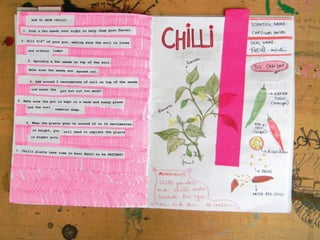 HOW TO GROW CHILLI:
1. Soak a few seeds over night to help them grow faster.
2. Fill 3/4 of your pot, making sure the soil is loose
and without lumps.
3. Sprinkle a few seeds on top of the soil.
Make sure the seeds are spaced out.
4. Add around 2 centimetres of soil on top of the seeds
and water the pot but not too much!
5. Make sure the pot is kept in a warm and sunny place
and the soil remains damp.
6. When the plants grow to around 10 to 15 centimetres
in height, you will need to replant the plants
in bigger pots.
7. Chilli plants take time to bear fruit so be PATIENT!
CHILLI
flower
fruit
SCIENTIFIC NAME:
LOCAL NAME:
YOU CAN EAT
GREEN
CHILLI
SEEDS
WARNING!
Chilli powder
and chilli seeds
irritate the eyes,
nose and skin. BE CAREFUL!